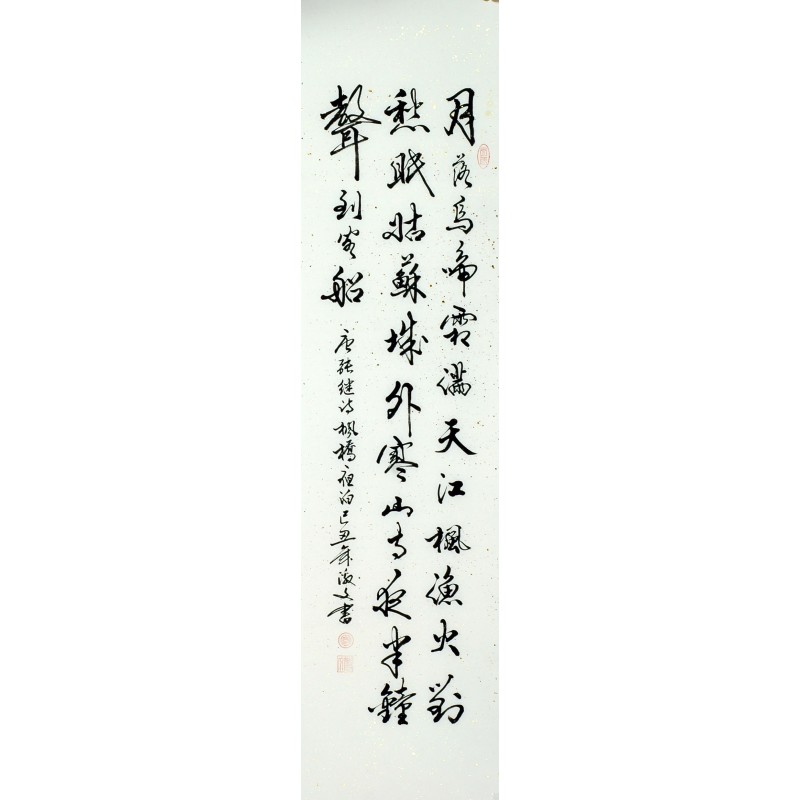 月落烏啼霜滿天江楓漁火對
愁眠姑蘇城外寒山寺夜半鐘
聲到客船
唐張继诗楓橋夜泊己丑年海文書